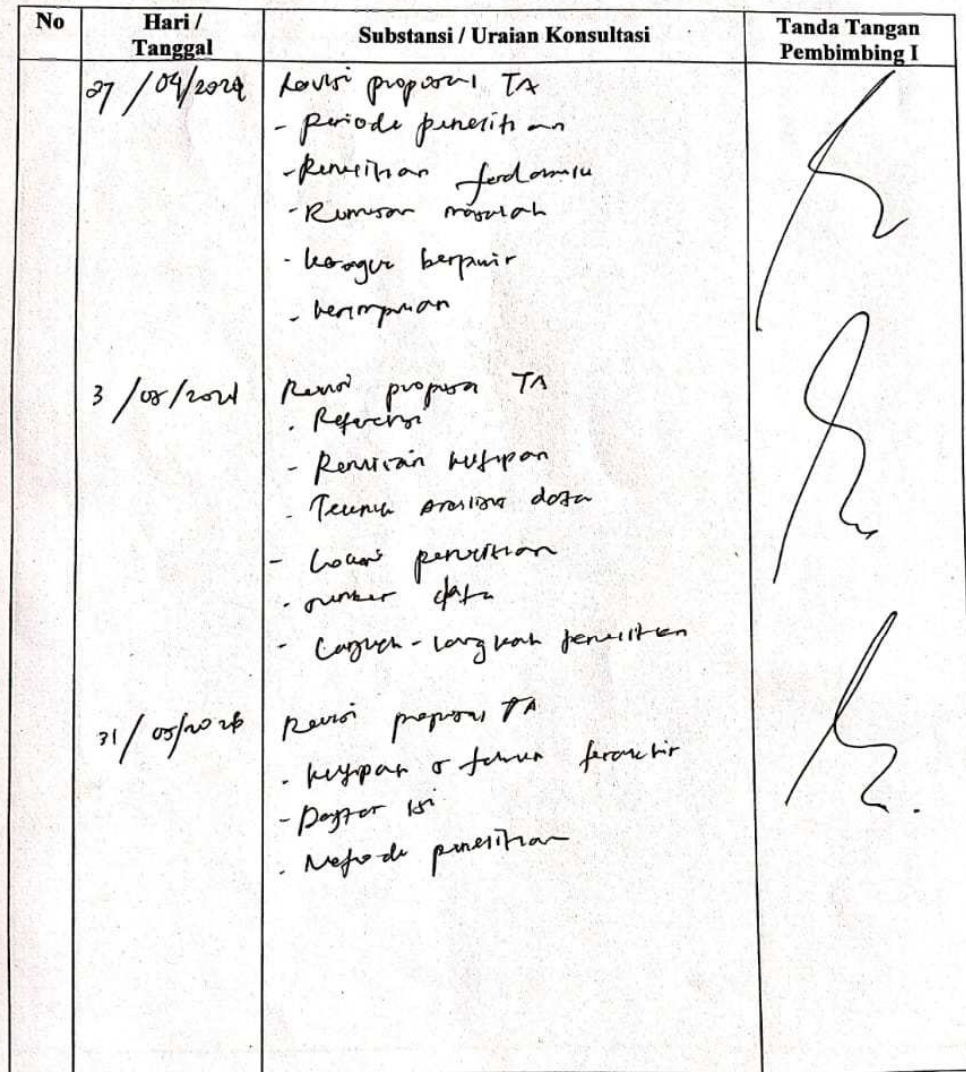 No
Hari /
Tanggal
Substansi / Uraian Konsultasi
Tanda Tangan
Pembimbing I
27 / 04/2024
Revisi proposal TA
- Periode penelitian
- Penelitian terdahulu
- Rumusan masalah
- kerangka berpikir
- kesimpulan
3 /
Revisi proposal TA
- Referensi
- Penulisan kutipan
- Teknik analisis data
- Lokasi penelitian
- sumber data
- Langkah - langkah penelitian
31 / 05/
Revisi proposal TA
- kutipan 5 tahun terakhir
- Daftar isi
- Metode penelitian